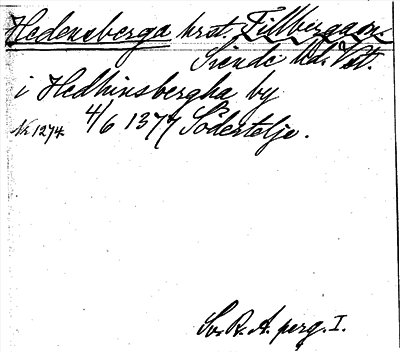 Hedensberga hrst. Tillberga sn.
Siende hd. Vstl.
i Hedhinsbergha by
Nr 1274. 4/6 1377 Södertelje.
Sv. R. A. perg. I.